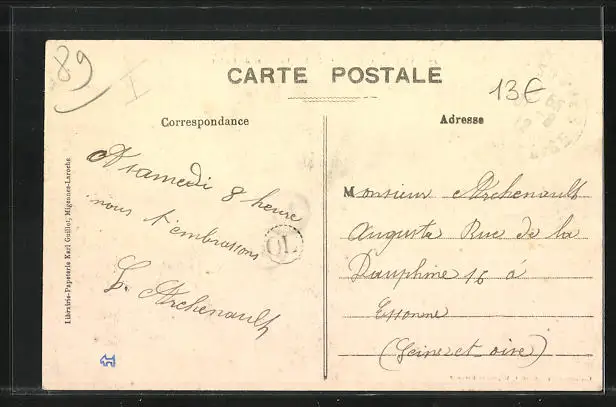 89
I
13€
CARTE POSTALE
Correspondance
Adresse
A samedi 8 heure
nous t'embrassons
L. Archenault
OL
Monsieur Archenault
Auguste Rue de la
Dauphine 16 à
Essonne
(Seine-et-oise)
Librairie-Papeterie Karl Guillot, Migennes-Laroche